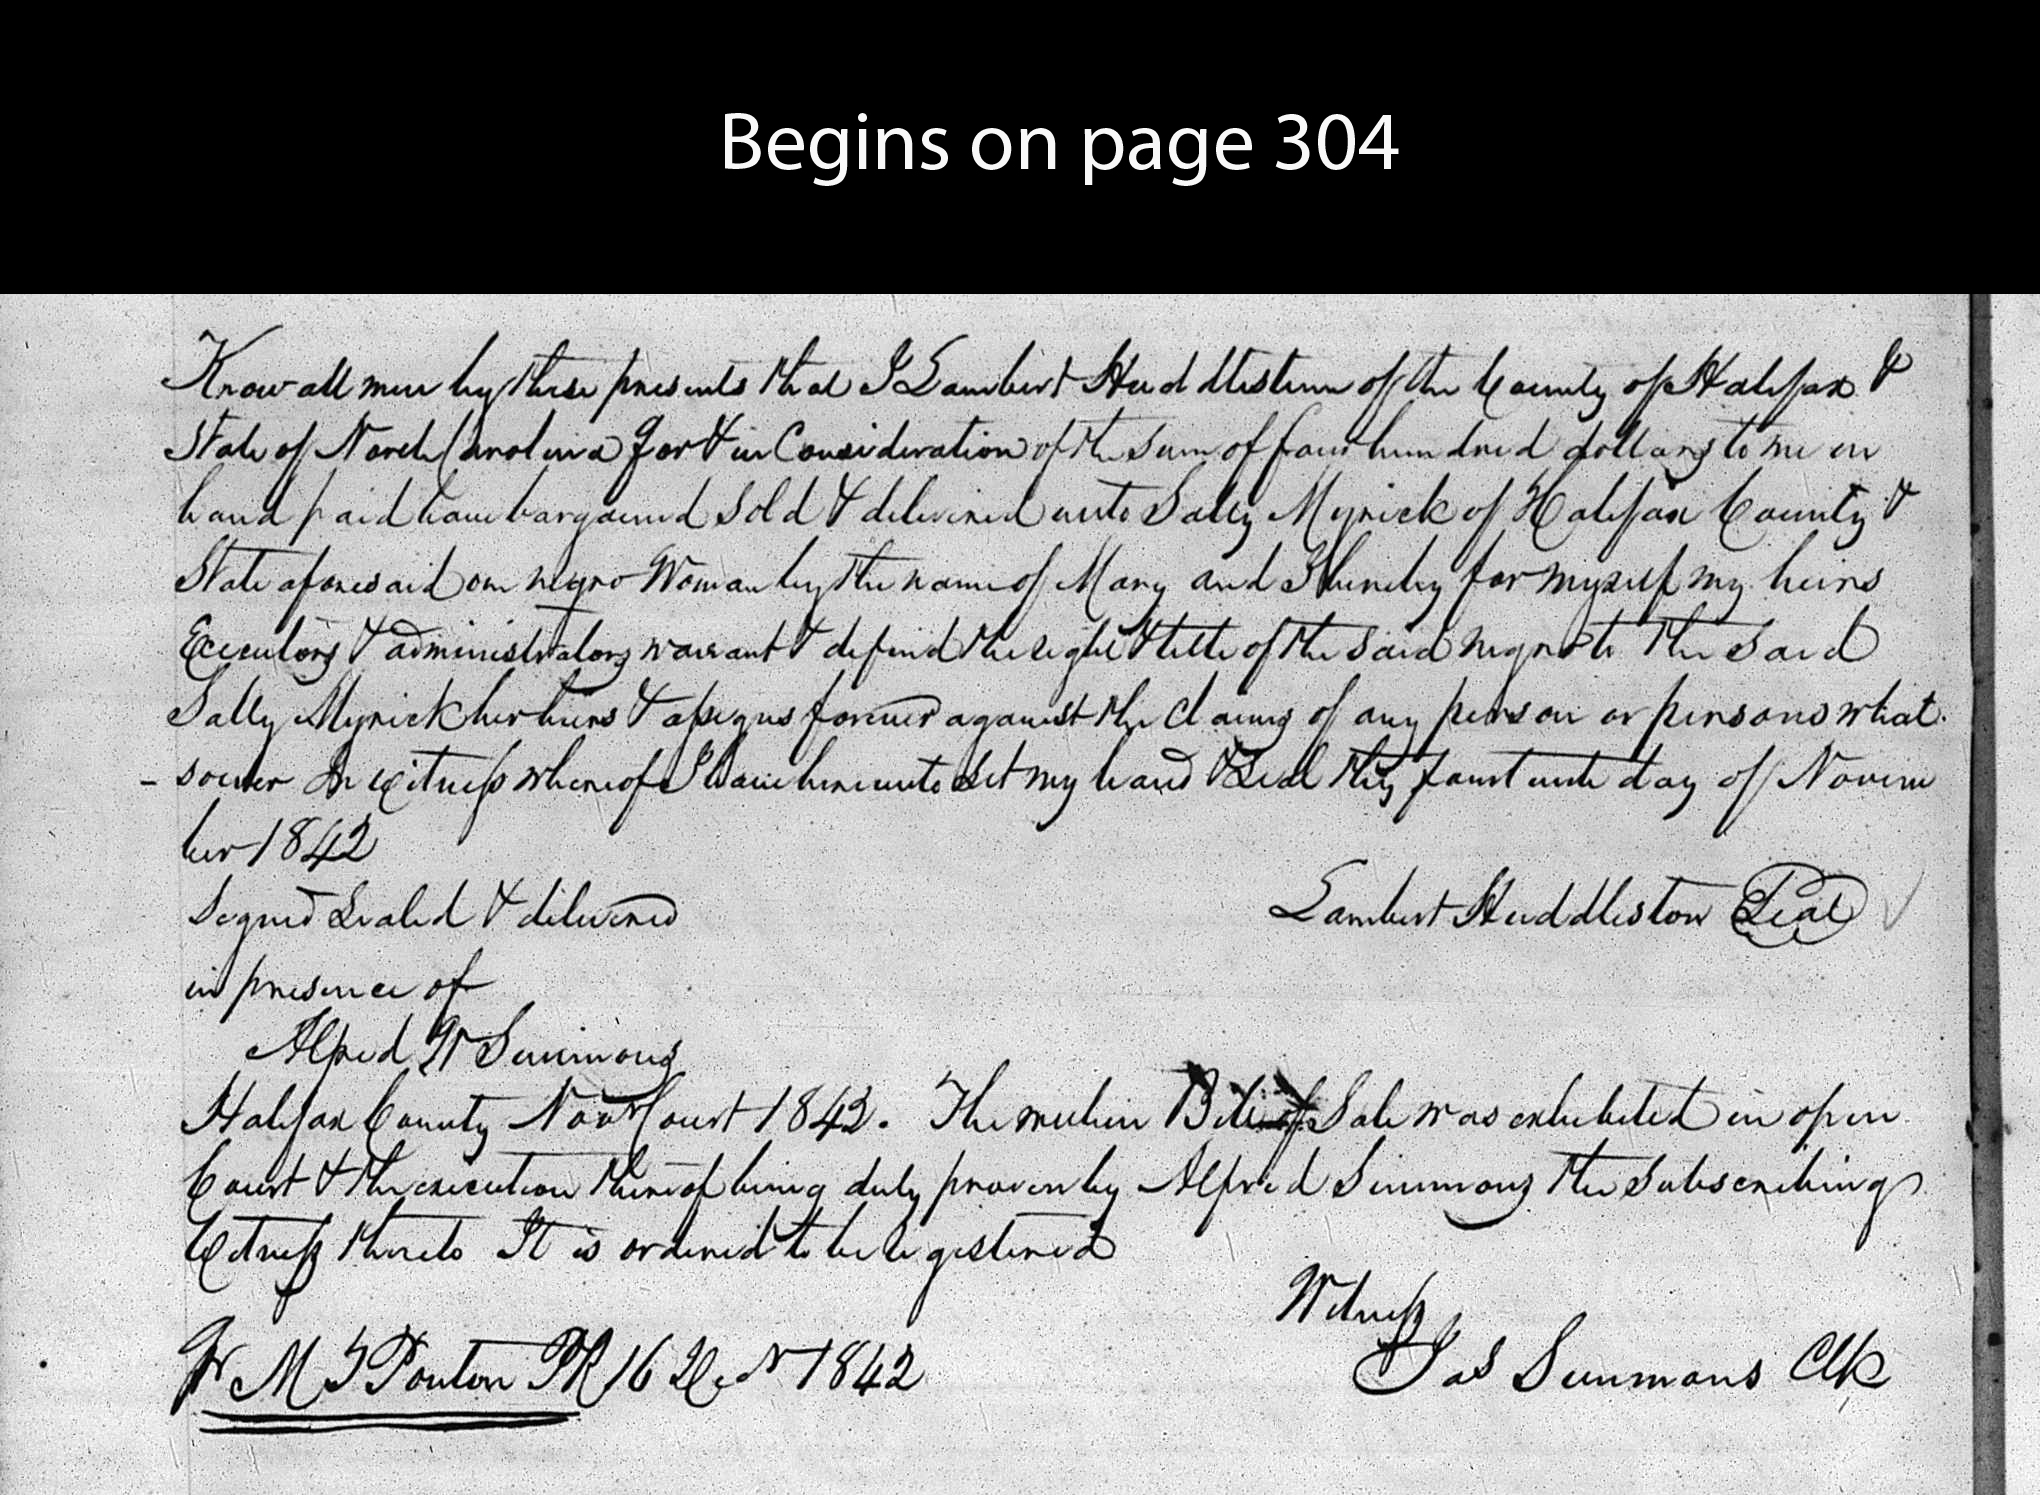 Begins on page 304
Know all men by these presents that I Lambert Huddlestenn of the County of Halifax &
State of North Carolina for & in Consideration of the sum of four hundred dollars to me in
hand paid have bargained sold & delivered unto Sally Myrick of Halifax County &
State aforesaid one negro Woman by the name of Mary and I hereby for myself my heirs
Executors & administrators warrant & defend the right & title of the said negro to the said
Sally Myrick her heirs & assigns forever against the claims of any person or persons what
- soever In Witness whereof I have hereunto set my hand & Seal this fourteenth day of Novem
ber 1842
Signed Sealed & delivered
Lambert Huddleston Seal
in presence of
Alfred W Simmons
Halifax County Novr Court 1842. The within Bill of Sale was exhibited in open
Court & the execution thereof being duly proven by Alfred Simmons the Subscribing
Witness thereto It is ordered to be Registered
Witness
Jas Simmons Clk
Pr M T Ponton PR 16 Decr 1842